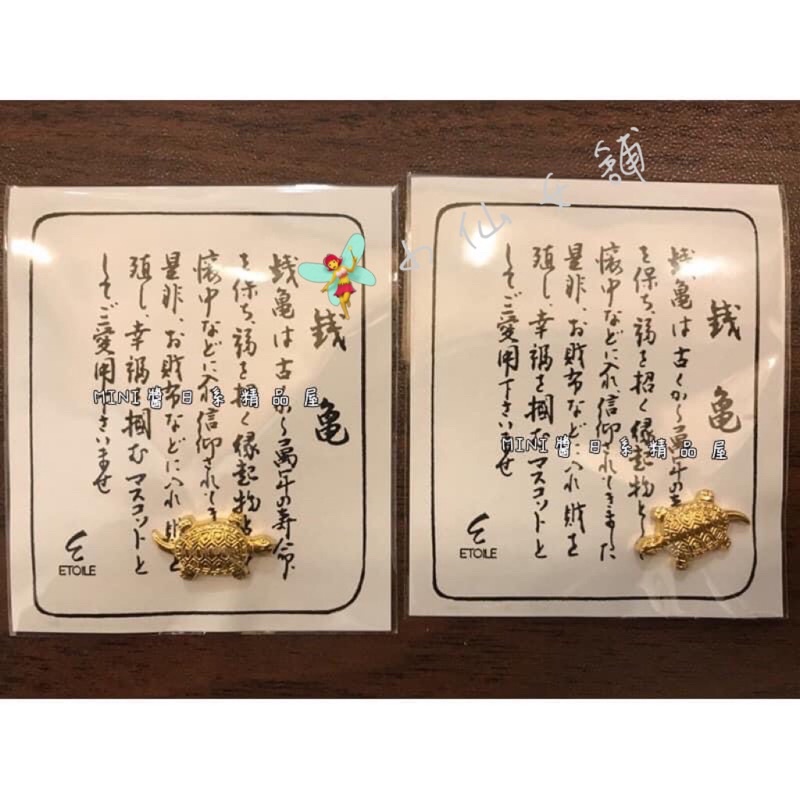 銭亀
銭亀は古くから萬年の寿命
を保ち、福を招く縁起物と
懐中などに入れ信仰されてき
是非、お財布などに入れ財を
殖し、幸福を掴むマスコットと
してご愛用下さいませ
ETOILE
MINI醬日系精品屋
小仙女舖
銭亀
銭亀は古くから萬年の寿
を保ち、福を招く縁起物とし
懐中などに入れ信仰されてきました
是非、お財布などに入れ財を
殖し、幸福を掴むマスコットと
してご愛用下さいませ
ETOILE
MINI醬日系精品屋